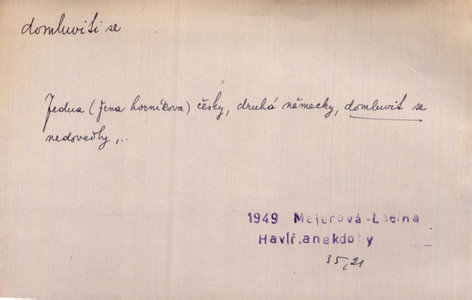 domluviti se
Jedna (žena horníkova) česky, druhá německy, domluvit se
nedovedly,..
1949 Majerová-Lacina
Havíř.anekdoty
35,21